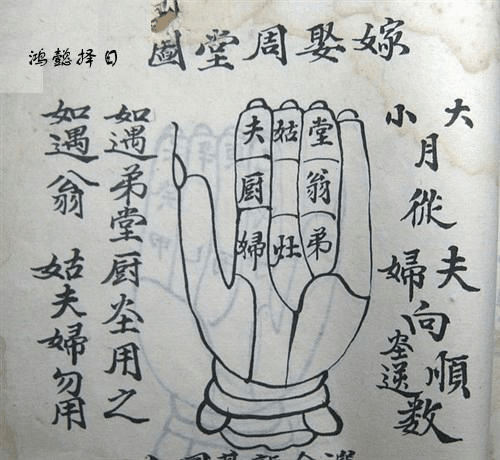 鸿懿择日
嫁娶周堂圖
大月從夫向順數
小 婦 灶逆
夫 姑 堂
厨 翁
婦 灶 弟
如遇弟堂厨灶用之
如遇翁 姑夫婦勿用